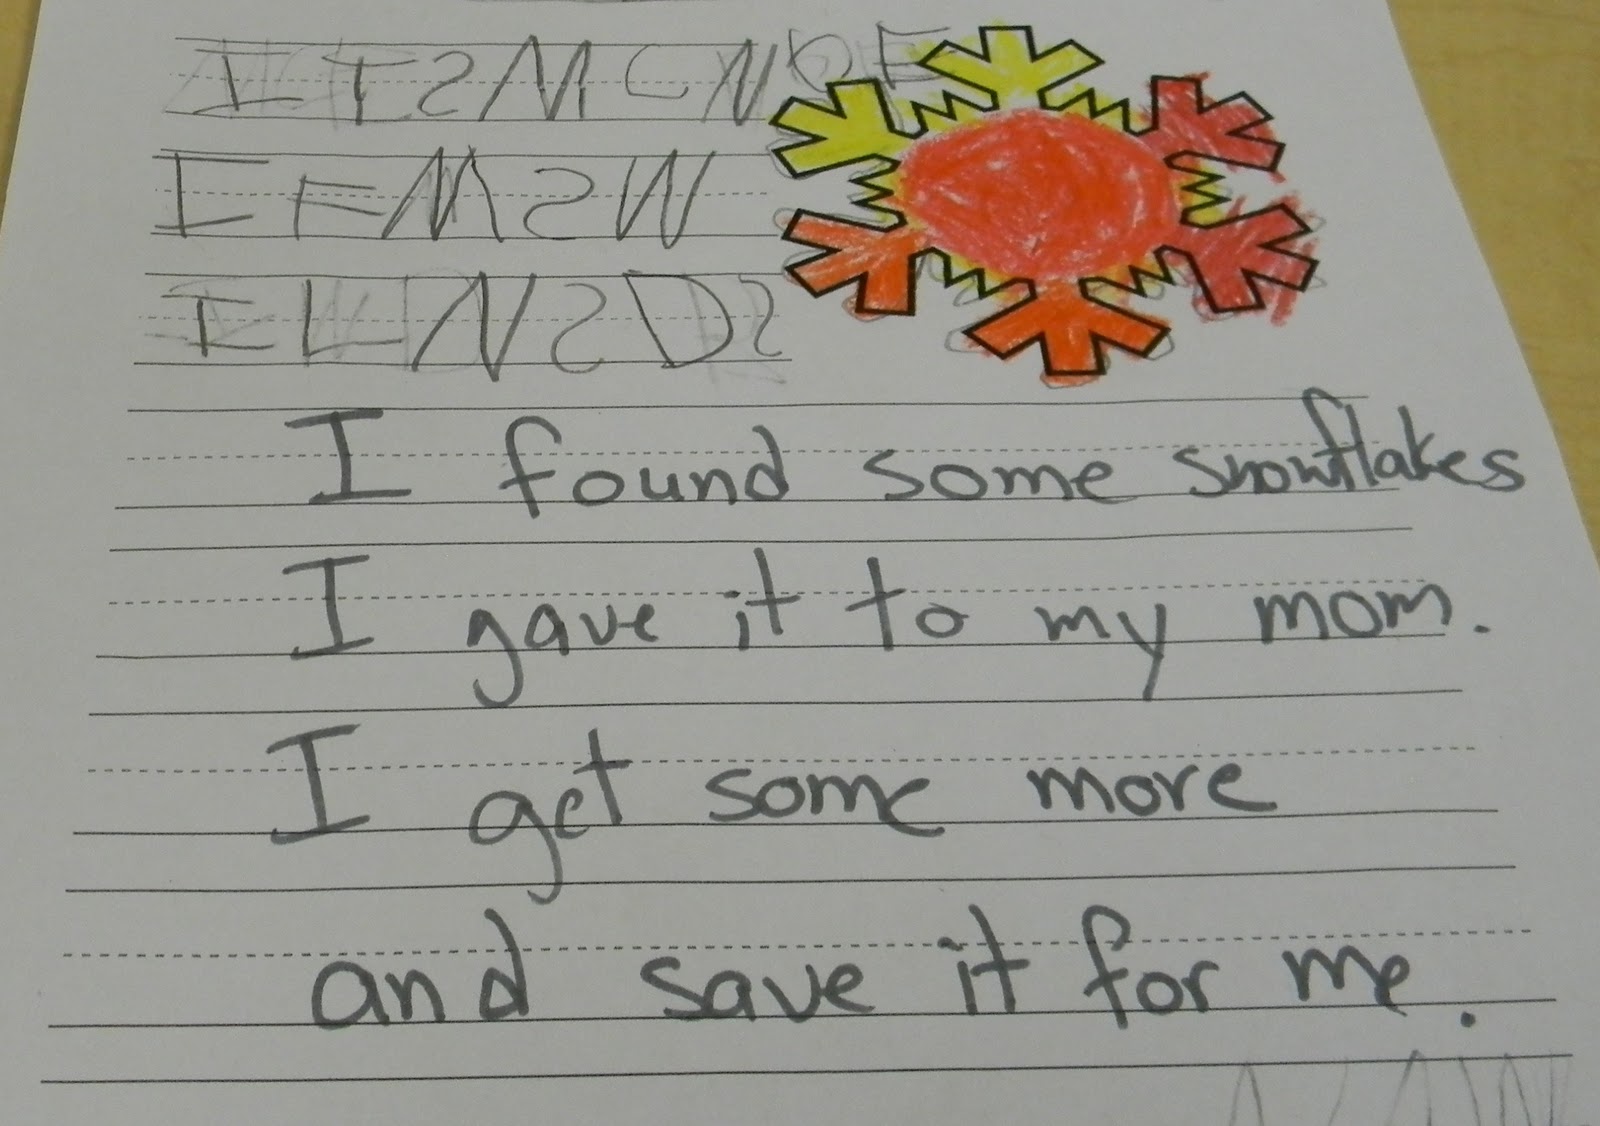 I T S M C N D E
I F M S W
I L N S D S
I found some snowflakes
I gave it to my mom.
I get some more
and save it for me.